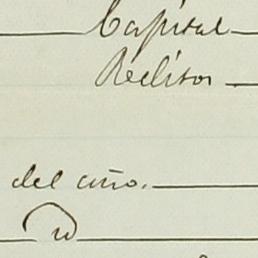 Capital
Réditos
del año.
id